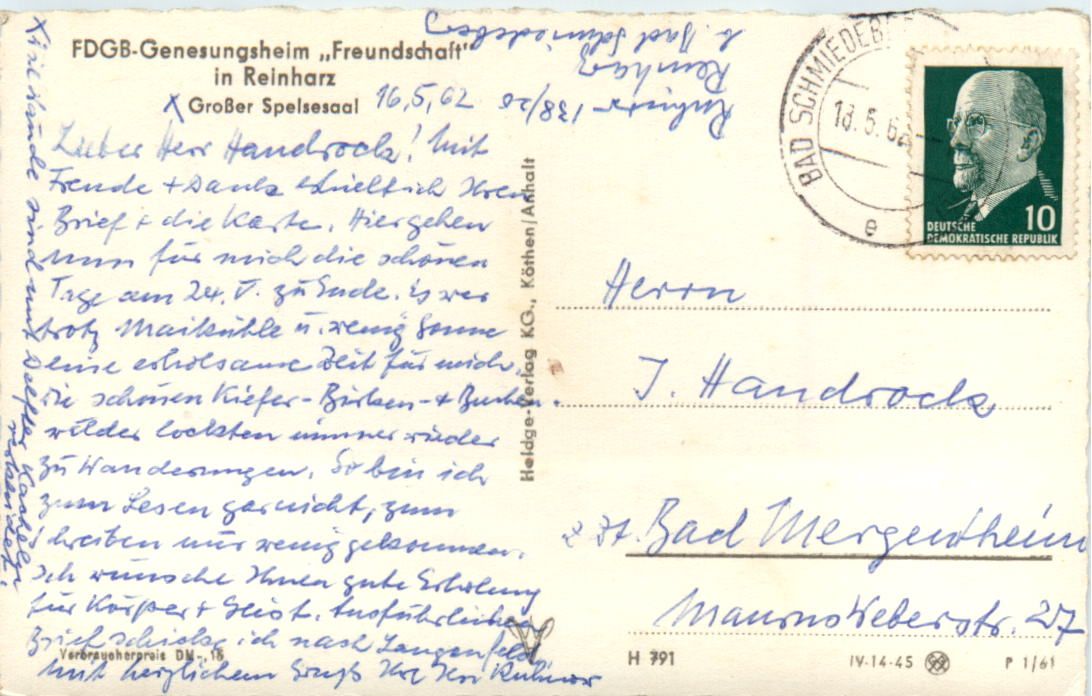 FDGB-Genesungsheim „Freundschaft"
in Reinharz
X Großer Speisesaal 16,5,62
Lieber Herr Handrock! Mit
Freude + Dank erhielt ich Ihren
Brief + die Karte. Hier gehen
nun für mich die schönen
Tage am 24. V. zu Ende. Es war
trotz Maikühle u. wenig Sonne
eine erholsame Zeit für mich.
Die schönen Kiefer- Birken- + Buchen-
wälder lockten immer wieder
zu Wanderungen. So bin ich
zum Lesen garnicht, zum
Schreiben nur wenig gekommen.
Ich wünsche Ihnen gute Erholung
für Körper + Geist. Ausführlichen
Brief schicke ich nach Langenfeld
Mit herzlichem Gruß Ihr
X sind mit Delfter Kacheln
verkleidet.
138/20
Reinharz
b. Bad Schmiedeberg
Verbraucherpreis DM -,18
Heldge-Verlag KG., Köthen/Anhalt
BAD SCHMIEDEBE
18.5.62
e
10
DEUTSCHE
DEMOKRATISCHE REPUBLIK
Herrn
J. Handrock
z. Zt. Bad Mergentheim
Weberstr. 27
H 791
IV-14-45
P 1/61